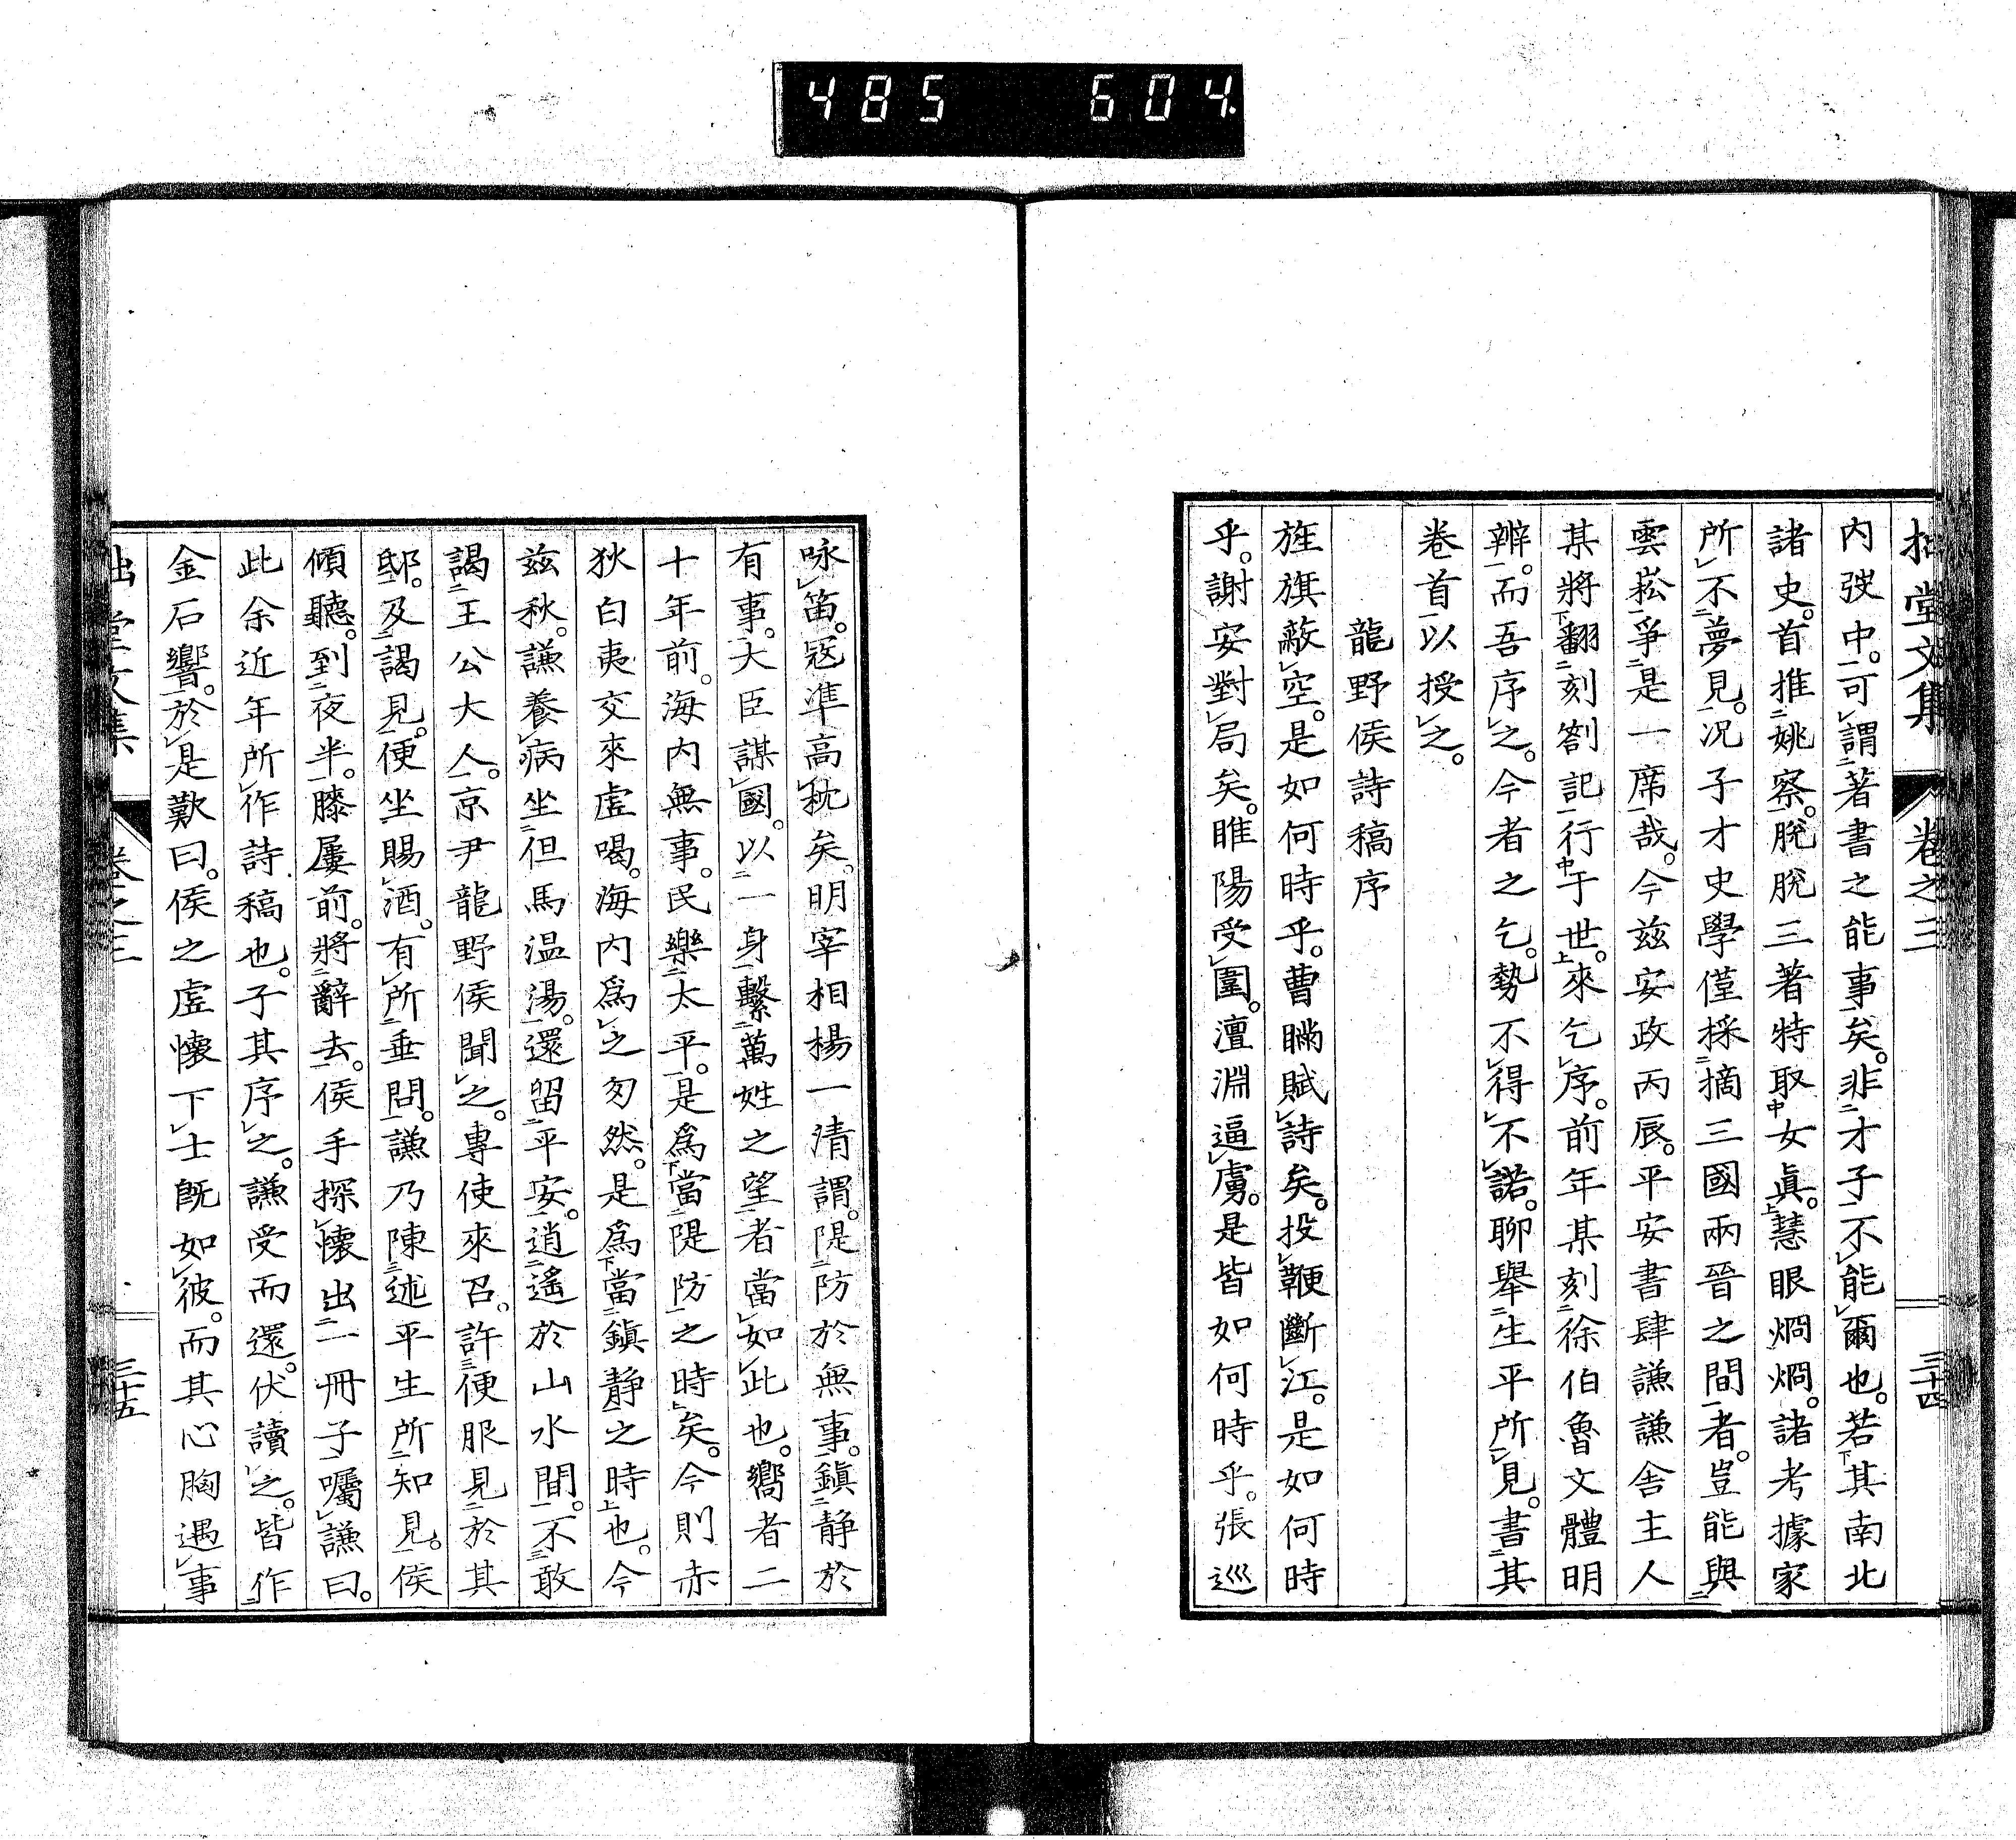 485 604
拙堂文集 卷之三 三十四
內弢中。可謂著書之能事矣。非才子不能爾也。若其南北
諸史。首推姚察。脫脫三著特取女眞。慧眼烱烱。諸考據家
所不夢見。况子才史學僅採摘三國兩晉之間者。豈能與
雲崧爭是一席哉。今玆安政丙辰。平安書肆謙謙舍主人
某將翻刻劄記行于世。來乞序。前年某刻徐伯魯文體明
辨。而吾序之。今者之乞。勢不得不諾。聊舉生平所見。書其
卷首以授之。
龍野侯詩稿序
旌旗蔽空。是如何時乎。曹瞞賦詩矣。投鞭斷江。是如何時
乎。謝安對局矣。睢陽受圍。澶淵逼虜。是皆如何時乎。張巡
咏笛。寇準高枕矣。明宰相楊一清謂。隄防於無事。鎭静於
有事。大臣謀國。以一身繫萬姓之望者當如此也。嚮者二
十年前。海內無事。民樂太平。是爲當隄防之時矣。今則赤
狄白夷交來虛喝。海內爲之匆然。是爲當鎭静之時也。今
玆秋。謙養病坐但馬温湯。還留平安。逍遙於山水間。不敢
謁王公大人。京尹龍野侯聞之。專使來召。許便服見於其
邸。及謁見。便坐賜酒。有所垂問。謙乃陳述平生所知見。侯
傾聽。到夜半。膝屢前。將辭去。侯手探懷出一冊子囑謙曰。
此余近年所作詩稿也。子其序之。謙受而還。伏讀之。皆作
金石響。於是歎曰。侯之虛懷下士既如彼。而其心胸遇事
拙堂文集 卷之三 三十五